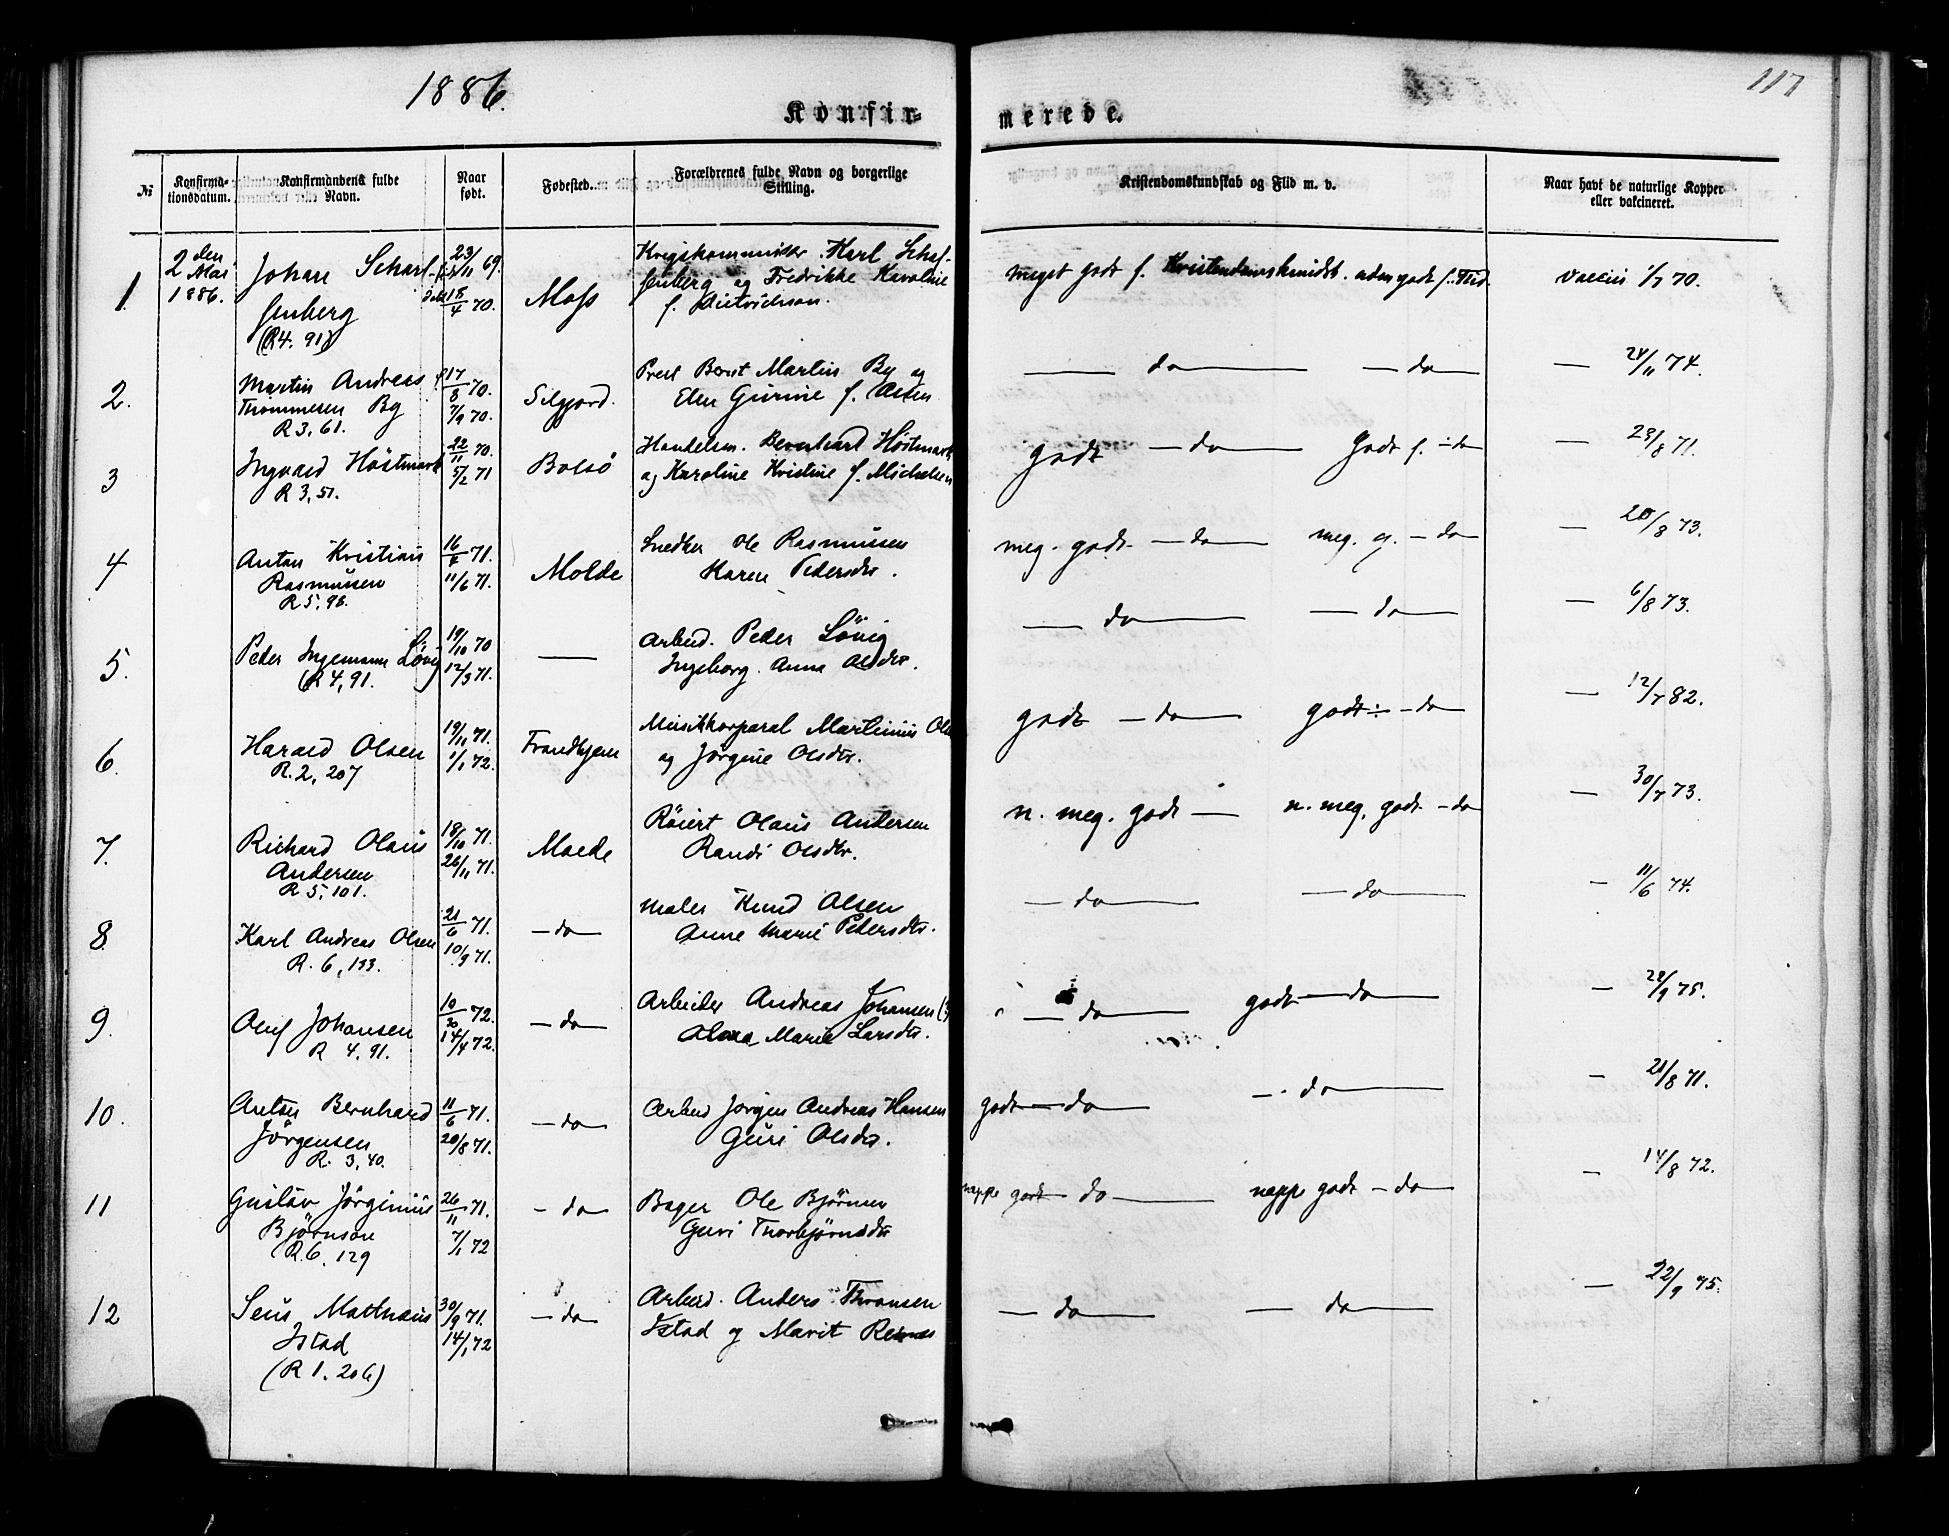 1886.
117
Konfir-
merede.
№
Konfirma-
tionsdatum.
Konfirmandens fulde
Navn.
Naar
født.
Fødested.
Forældrenes fulde Navn og borgerlige
Stilling.
Kristendomskundskab og Flid m. v.
Naar havt de naturlige Kopper
eller vakcineret.
1.
2den
Mai
1886.
Johan Scharf-
fenberg
(R 4. 91)
f. 23/11 69.
døbt 18/4 70.
Moss
Krigskommissær Karl Schaf-
fenberg og Fredrikke Karoline
f. Dietrichson.
meget godt f. Kristendomskundsk. uden godt f. Flid.
vaccin 1/7 70.
2.
Martin Andreas
Thommesen By
R 3, 61.
f 17/8 70.
7/9 70.
Silgjord.
Prest Bernt Martin By og
Elen Gurine f. Olsen
— do — — do —
— 24/11 74.
3
Ingvard Høstmark
R 3, 51.
22/11 70.
5/2 71
Bolsø
Handelsm. Bernhard Høstmark
og Karoline Kristine f. Michelsen
godt — do — Godt f. — do
— 23/8 71.
4
Anton Kristian
Rasmussen
R 5, 98.
16/4 71.
11/6 71.
Molde
Snedker Ole Rasmussen
Karen Pedersdtr.
meg. godt — do — meg. g. — do
— 20/8 73.
5.
Peder Ingemann Løvig
(R 4, 91.)
19/10 70
12/3 71.
—
Arbeid. Peder Løvig
Ingeborg Anna Olsdtr.
— do — — do —
— 6/8 73.
6.
Harald Olsen
R. 2, 207
19/11 71.
1/1 72.
Trondhjem
Musikkorporal Martinus Ols
og Jørgine Olsdtr.
godt — do — godt — do
— 12/7 82.
7.
Richard Olaus
Andersen
R 5, 101.
18/10 71.
26/11 71.
Molde
Røiert Olaus Andersen
Randi Olsdtr.
n. meg. godt — n. meg. godt — do
— 30/7 73.
8.
Karl Andreas Olsen
R. 6, 133.
21/6 71.
10/9 71.
— do —
Maler Knud Olsen
Anne Marie Pedersdtr.
— do — — do —
— 11/6 74.
9.
Oluf Johansen
R 4, 91.
10/20 72.
14/4 72.
— do —
Arbeider Andreas Johansen
Marie Larsdtr.
— do — godt — do —
— 29/9 75.
10.
Anton Bernhard
Jørgensen
R. 3, 40.
11/6 71.
20/8 71.
— do —
Arbeid Jørgen Andreas Hansen
Guri Olsdtr.
godt — do — — do —
— 21/8 71.
11
Gustav Jørginius
Bjørnson
(R. 6, 129
26/11 71.
7/1 72
— do
Bager Ole Bjørnsen
Guri Thorbjørnsdtr
neppe godt do — neppe godt — do
— 14/8 72.
12
Sens Matthæus
Istad
(R 1. 206)
30/9 71.
14/1 72
— do —
Arbeid. Anders Thronsen
Istad og Marit Reknes
— do — — do —
— 22/9 75.